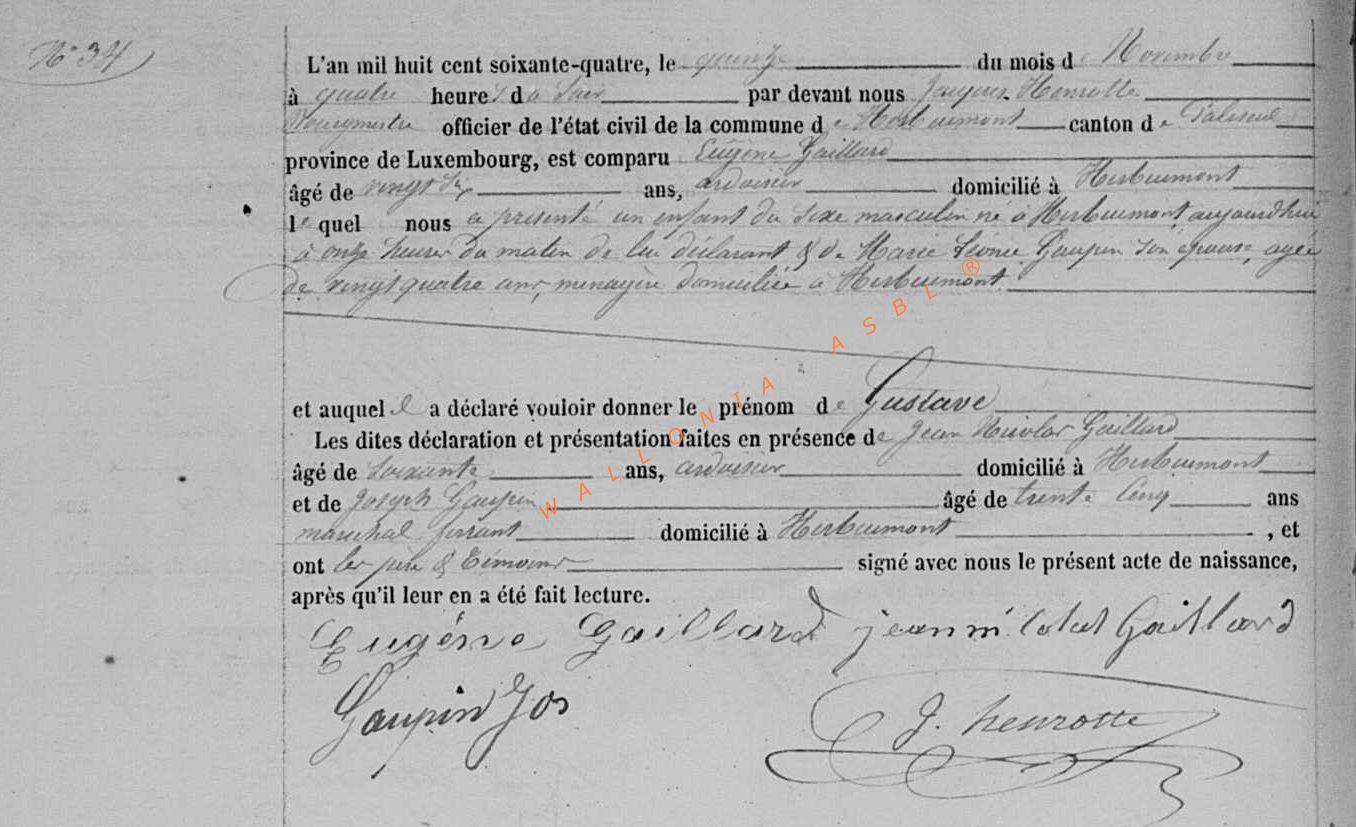 N° 34
L'an mil huit cent soixante-quatre, le quinze du mois de Novembre
à quatre heures du soir par devant nous Jacques Henrotte
Bourgmestre officier de l'état civil de la commune de Herbeumont canton de Paliseul
province de Luxembourg, est comparu Eugène Gaillard
âgé de vingt six ans, ardoisier domicilié à Herbeumont
lequel nous a présenté un enfant du sexe masculin né à Herbeumont, aujourd'hui
à onze heures du matin de lui déclarant & de Marie Léonie Gaupin son épouse, agée
de vingt quatre ans, menagère domiciliée à Herbeumont
et auquel il a déclaré vouloir donner le prénom de Gustave
Les dites déclaration et présentation faites en présence de Jean Nicolas Gaillard
âgé de soixante ans, ardoisier domicilié à Herbeumont
et de Joseph Gaupin âgé de trente cinq ans
marechal ferrant domicilié à Herbeumont , et
ont les père & témoins signé avec nous le présent acte de naissance,
après qu'il leur en a été fait lecture.
Eugène Gaillard jean nicolas Gaillard
Gaupin Jos J. henrotte
WALLONIA ASBL ®